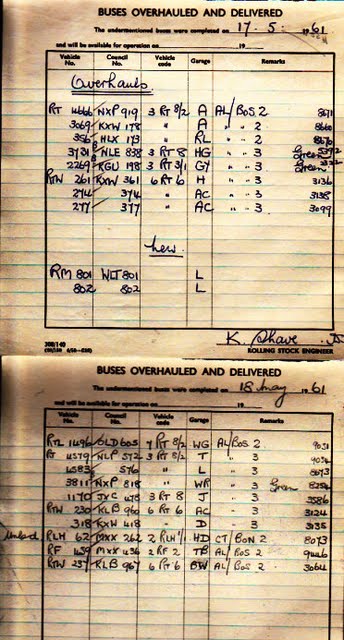 BUSES OVERHAULED AND DELIVERED
The undermentioned buses were completed on 17. 5. 1961
and will be available for operation on 19
Vehicle No. Council No. Vehicle code Garage Remarks
Overhauls.
RT 4666 NXP 919 3 RT 8/2 A AL/BOS 2 8671
3069 KXW 178 " A " " 2 8660
356 HLX 173 " RL " " 2 8676
3731 NLE 838 3 RT 8 HG " " 3 Green
2269 KGU 198 3 RT 3/1 GY " " 3 Green
RTW 261 KXW 361 6 RT 6 H " " 3 3136
274 374 " AC " " 3 3138
277 377 " AC " " 3 3099
New.
RM 801 WLT 801 L
802 802 L
K. Shave
ROLLING STOCK ENGINEER
BUSES OVERHAULED AND DELIVERED
The undermentioned buses were completed on 18 May 1961
and will be available for operation on 19
Vehicle No. Council No. Vehicle code Garage Remarks
RTL 1496 OLD 605 7 RT 8/2 WG AL/BOS 2 9031
RT 4579 NLP 572 3 RT 8/2 T " 3
4583 576 " L " 3 8673
3811 NXP 818 " WR " 3 Green 8256
1170 JXC 3 RT 8 J " 3 3586
RTW 230 KLB 960 6 RT 6 AC " 3 3124
318 KXW 418 " D " 3 3135
RLH 62 MXX 262 2 RLH /1 HD CT/BON 2 8073
RF 459 MXX 436 2 RF 2 TB AL/BOS 2 9446
RTW 237 KLB 967 6 RT 6 BW AL/BOS 3 3064